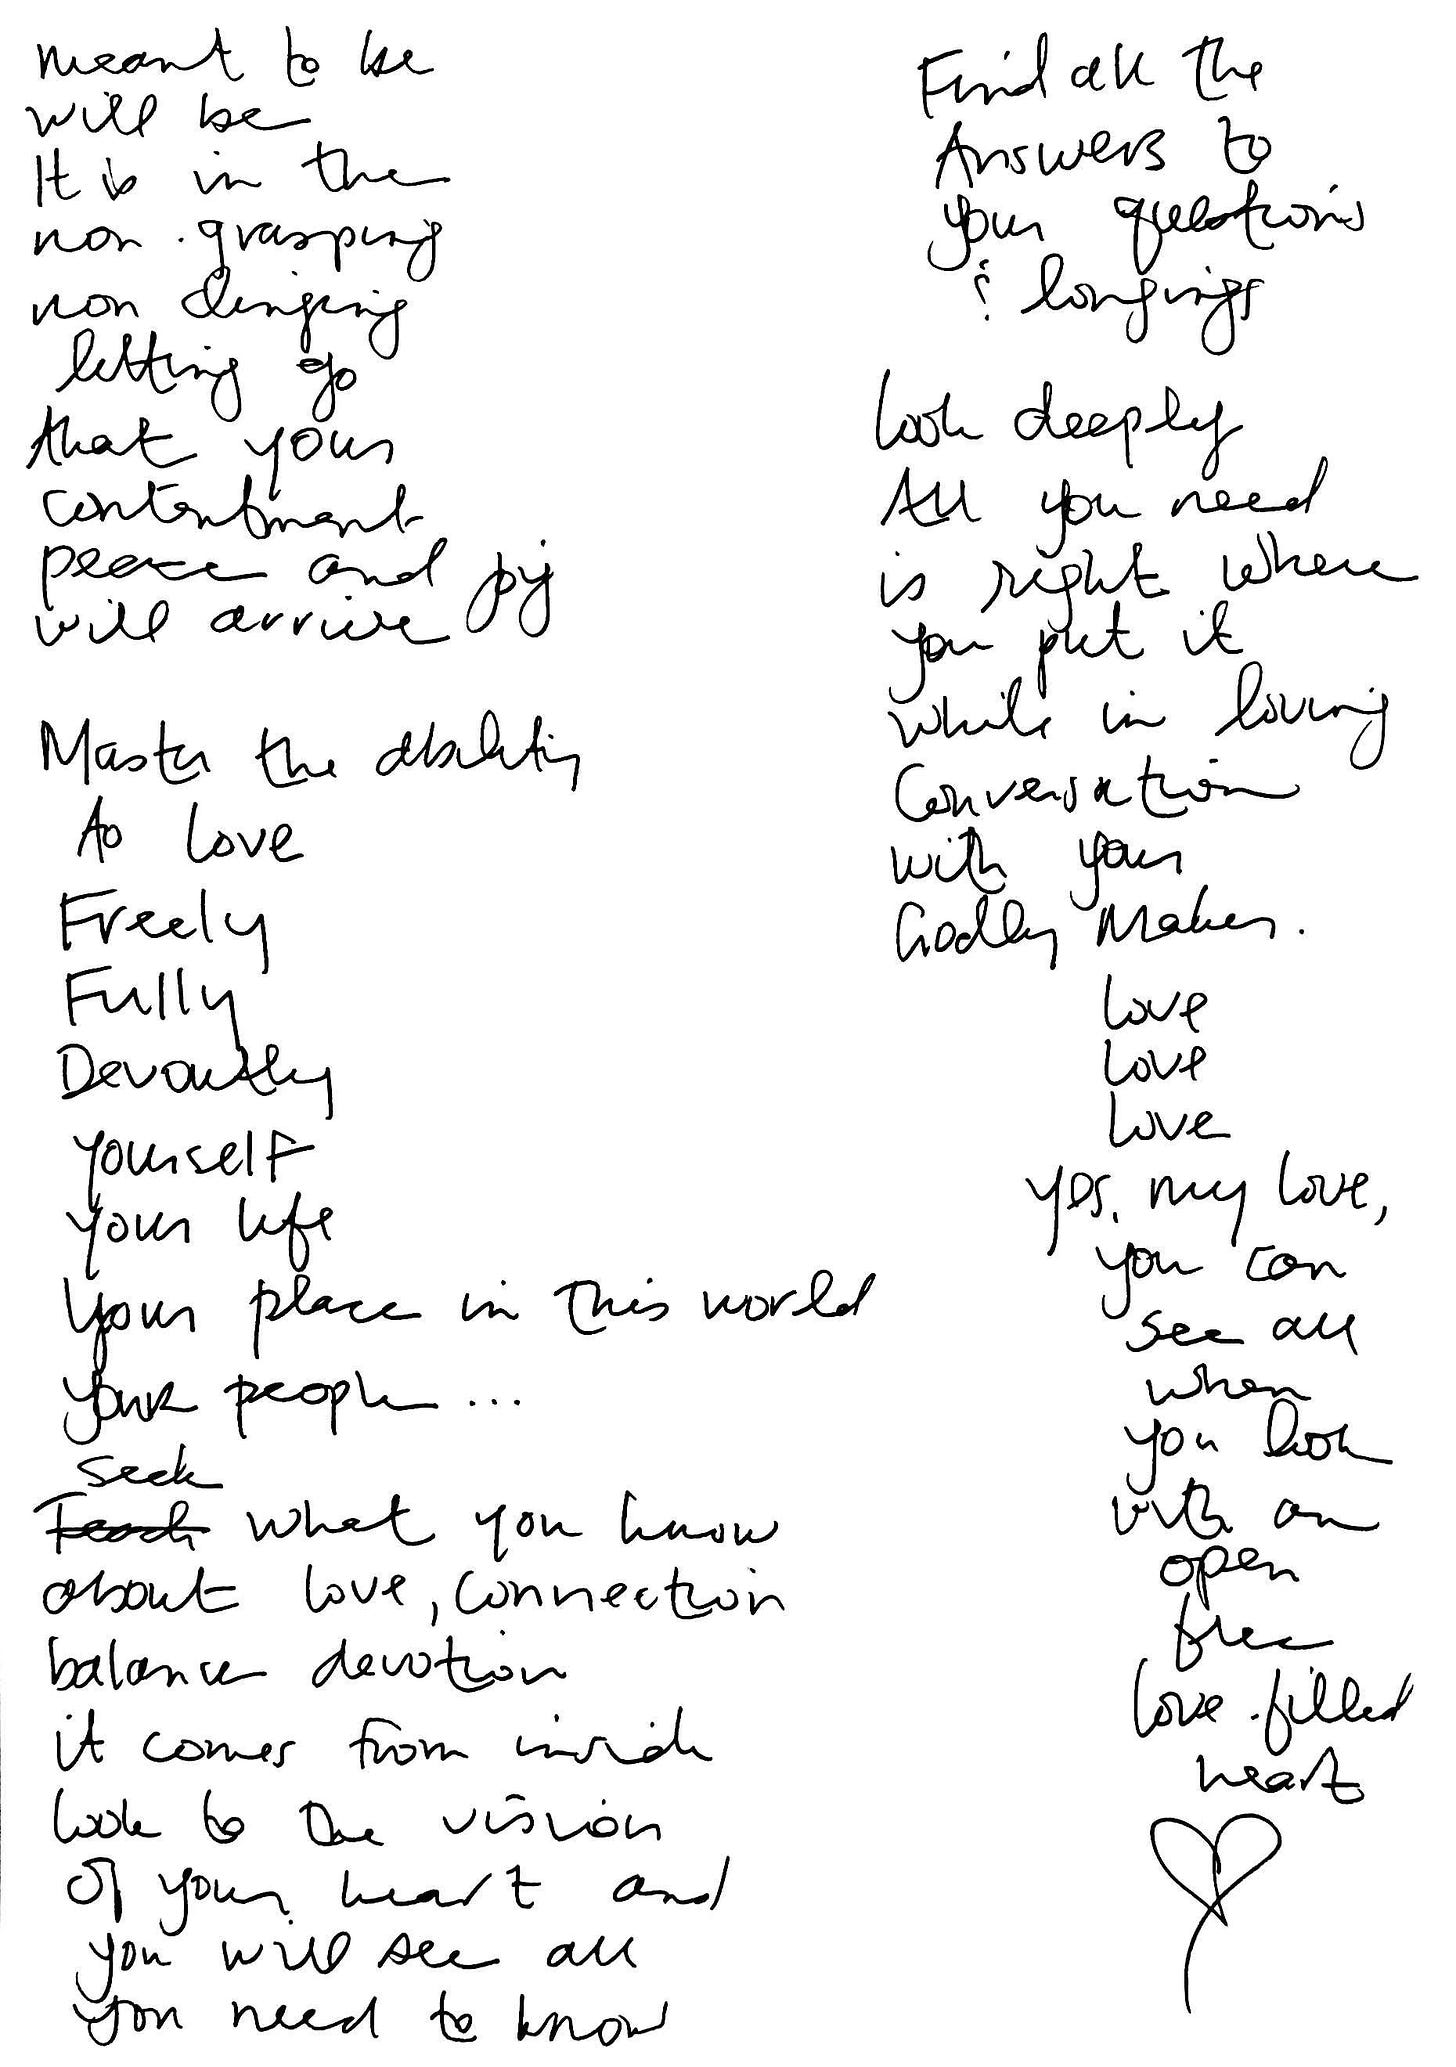 meant to be
will be
It is in the
non-grasping
non clinging
letting go
that your
contentment
peace and joy
will arrive
Master the ability
to love
Freely
Fully
Devoutly
yourself
your life
Your place in this world
your people...
seek
Teach what you know
about love, connection
balance devotion
it comes from inside
look to the vision
of your heart and
you will see all
you need to know
Find all the
Answers to
your questions
& longings
look deeply
All you need
is right where
you put it
while in loving
Conversation
with your
Godly Maker.
love
love
love
yes, my love,
you can
see all
when
you look
with an
open
free
love-filled
heart